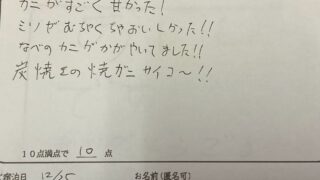 カニがすごく甘かった!
ミソゼむちゃくちゃおいしかった!!
なべのカニがかがやいてました!!
炭焼きの焼ガニサイコ〜!!
10点満点で 10 点
宿泊日 12/25 お名前(匿名可)